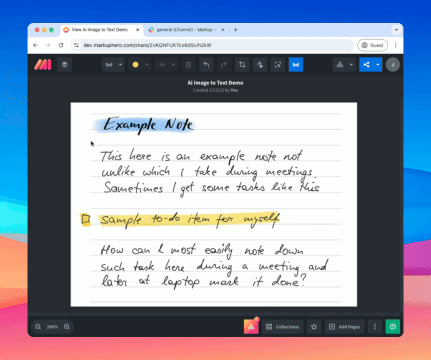 View AI Image to Text Demo
general (Channel) - Markup
dev.markuphero.com/share/
Guest
AI Image to Text Demo
Created 1/31/25 by You
J
Example Note
This here is an example note not
unlike which I take during meetings.
Sometimes I get some tasks like this
sample to-do item for myself
How can I most easily note down
such task here during a meeting and
later at laptop mark it done?
100%
Collections
Add Pages